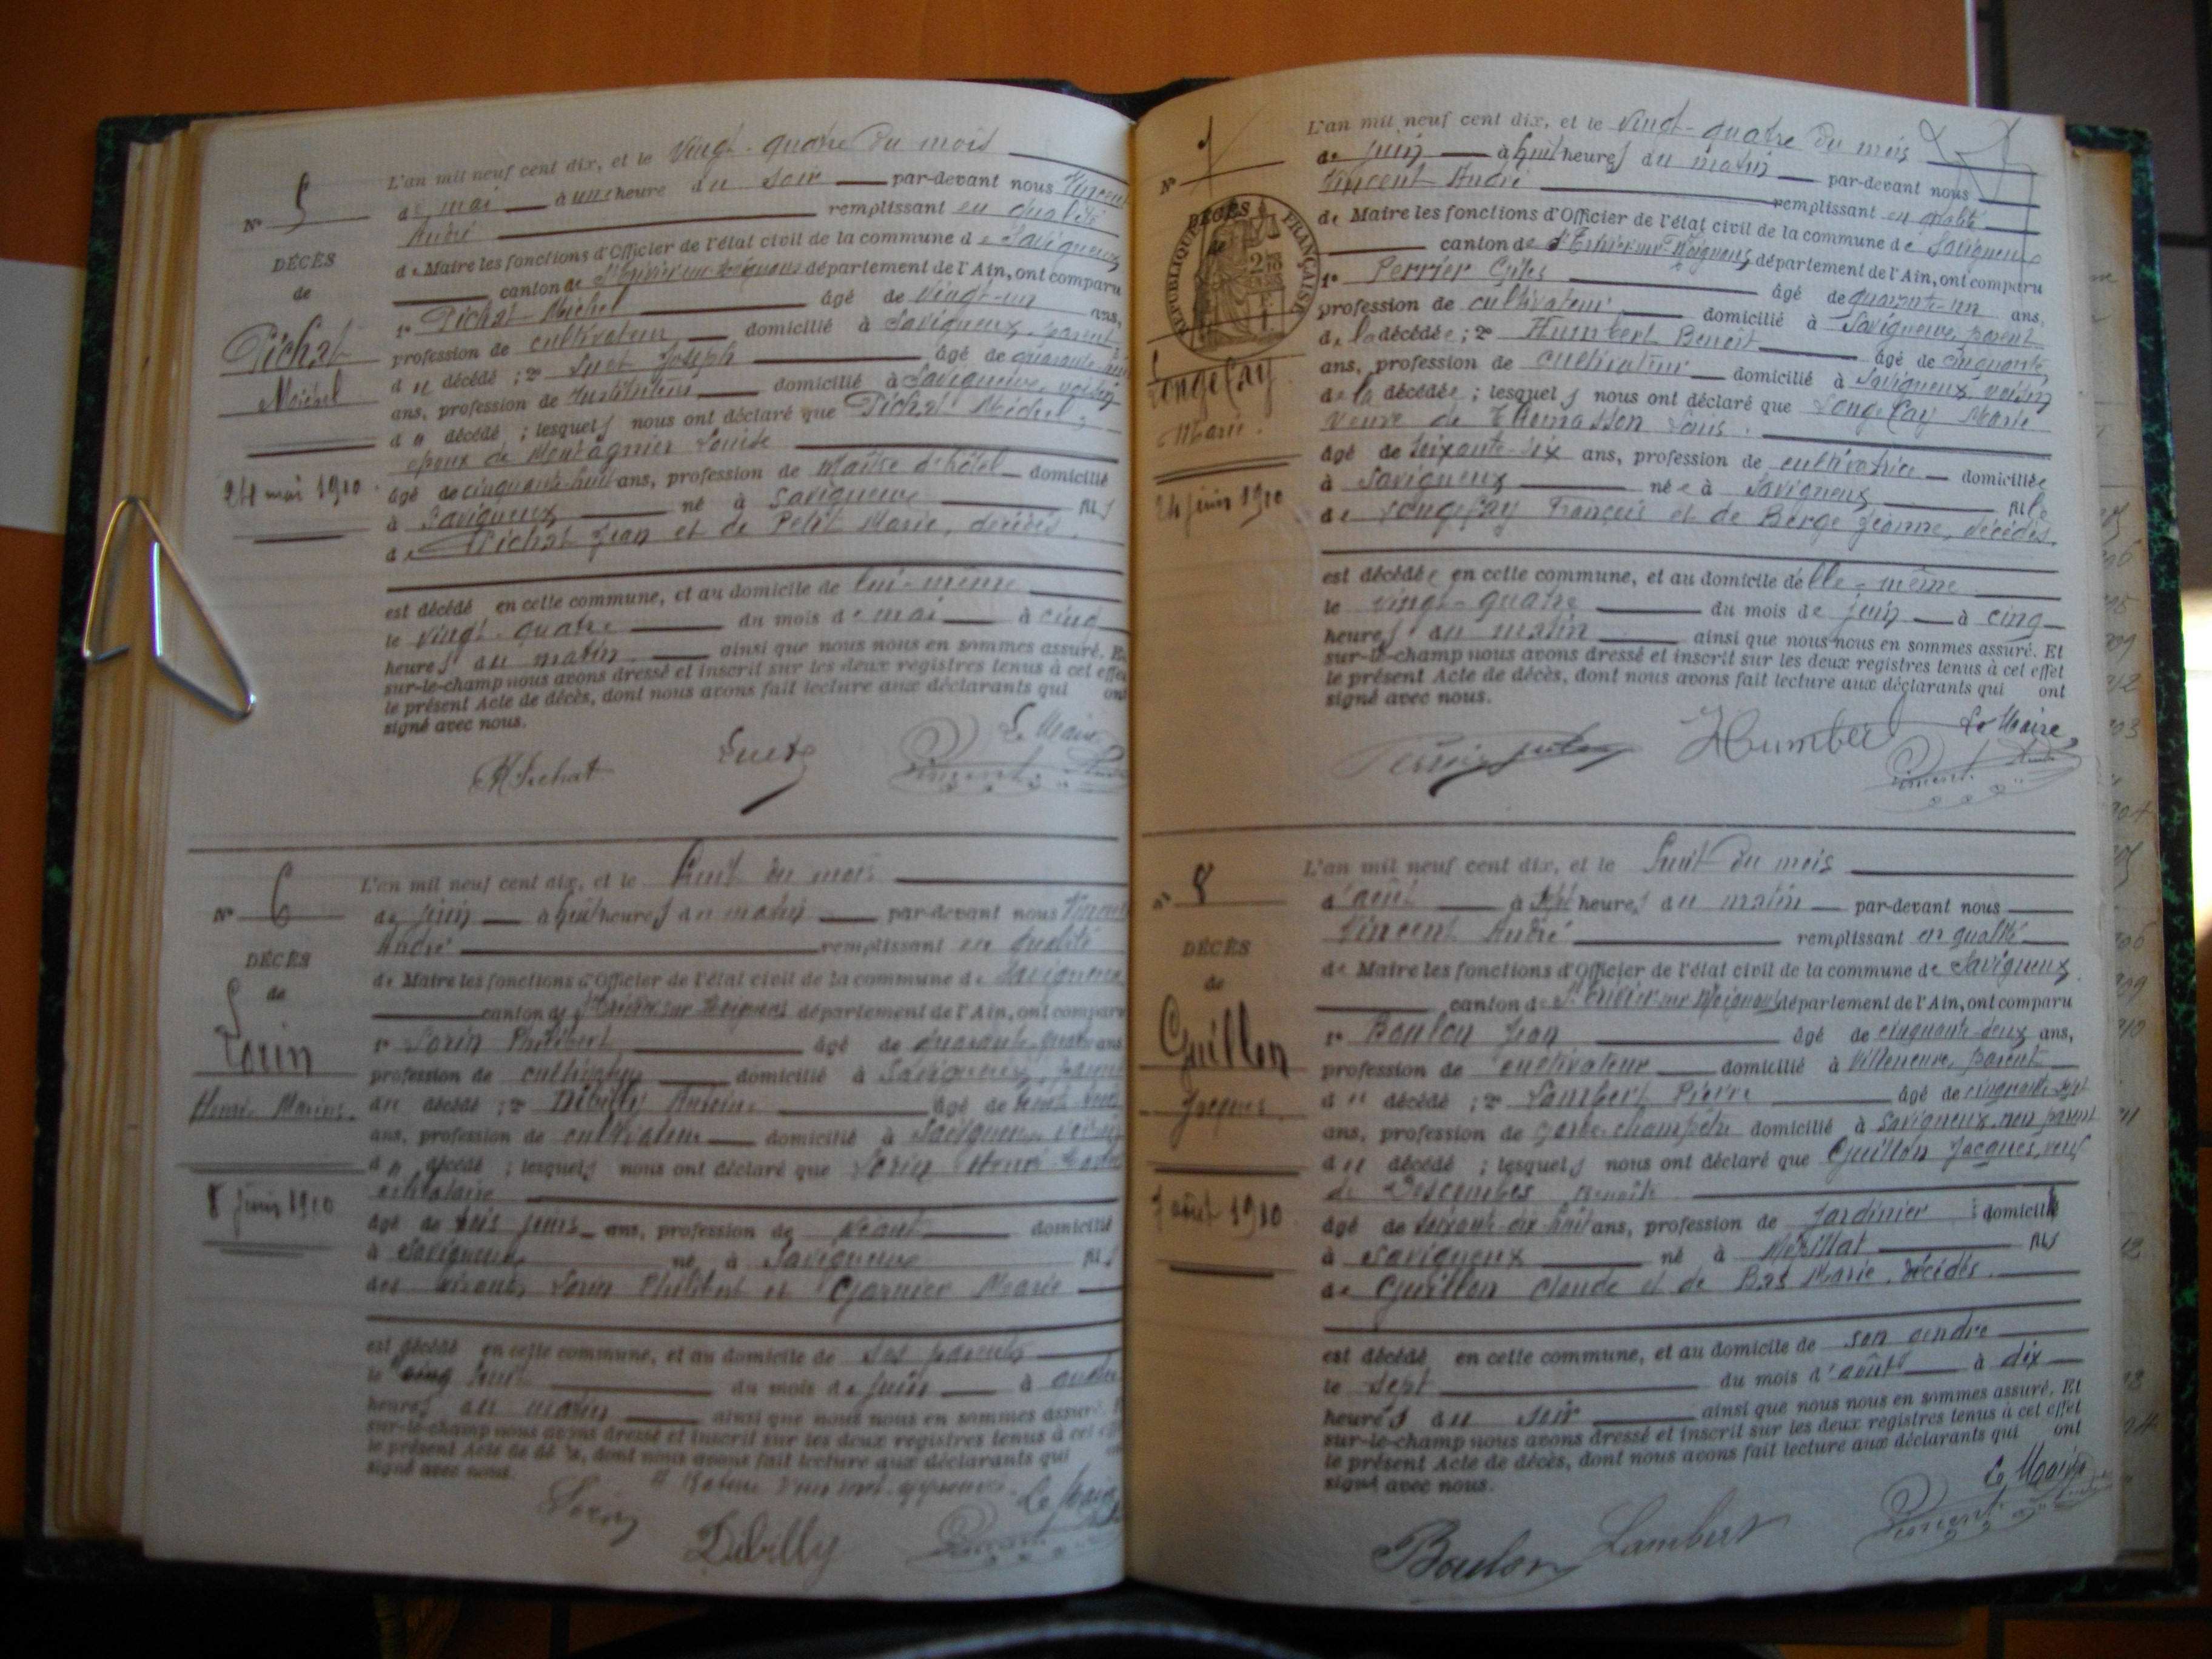 L'an mil neuf cent dix, et le vingt-quatre du mois
N° 5
de mai à une heure du soir par-devant nous Vincent
André remplissant en qualité
DÉCÈS
de Maire les fonctions d'Officier de l'état civil de la commune de Savigneux
de
canton de St Trivier-sur-Moignans département de l'Ain, ont comparu
1° Pichat Michel âgé de vingt-un ans,
Pichat
profession de cultivateur domicilié à Savigneux, parent
du décédé ; 2° Suet Joseph âgé de quarante
Michel
ans, profession de Instituteur domicilié à Savigneux, voisin
du décédé ; lesquels nous ont déclaré que Pichat Michel,
époux de Montagnier Louise
24 mai 1910
âgé de cinquante-huit ans, profession de Maître d'hôtel domicilié
à Savigneux né à Savigneux fils
de Pichat Jean et de Petit Marie, décédés.
est décédé en cette commune, et au domicile de lui-même
le vingt-quatre du mois de mai à cinq
heures du matin ainsi que nous nous en sommes assuré. Et
sur-le-champ nous avons dressé et inscrit sur les deux registres tenus à cet effet
le présent Acte de décès, dont nous avons fait lecture aux déclarants qui ont
signé avec nous.
Le Maire
Pichat Suet Vincent André
L'an mil neuf cent dix, et le huit du mois
N° 6
de juin à huit heures du matin par-devant nous Vincent
André remplissant en qualité
DÉCÈS
de Maire les fonctions d'Officier de l'état civil de la commune de Savigneux
de
canton de St Trivier-sur-Moignans département de l'Ain, ont comparu
1° Sorin Philibert âgé de quarante-quatre ans
Sorin
profession de cultivateur domicilié à Savigneux, parent
Henri Marius
du décédé ; 2° Dibilly Antoine âgé de trente
ans, profession de cultivateur domicilié à Savigneux voisin
du décédé ; lesquels nous ont déclaré que Sorin Henri
célibataire
8 juin 1910
âgé de trois jours ans, profession de néant domicilié
à Savigneux né à Savigneux fils
des vivants Sorin Philibert et Garnier Marie
est décédé en cette commune, et au domicile de ses parents
le huit du mois de juin à quatre
heures du matin ainsi que nous nous en sommes assuré. Et
sur-le-champ nous avons dressé et inscrit sur les deux registres tenus à cet effet
le présent Acte de décès, dont nous avons fait lecture aux déclarants qui ont
signé avec nous.
Le Maire
Sorin Dibilly Vincent André
L'an mil neuf cent dix, et le vingt-quatre du mois
N° 7
de juin à huit heures du matin par-devant nous
Vincent André remplissant en qualité
DÉCÈS
de
RÉPUBLIQUE FRANÇAISE
de Maire les fonctions d'Officier de l'état civil de la commune de Savigneux
canton de St Trivier-sur-Moignans département de l'Ain, ont comparu
1° Perrier Jules âgé de quarante-un ans,
profession de cultivateur domicilié à Savigneux, parent
de la décédée ; 2° Humbert Benoît âgé de cinquante
Longefay
ans, profession de cultivateur domicilié à Savigneux, voisin
de la décédée ; lesquels nous ont déclaré que Longefay Marie
Marie.
veuve de Thomasson Louis.
âgé de soixante-six ans, profession de cultivatrice domiciliée
24 juin 1910
à Savigneux née à Savigneux fille
de Longefay François et de Berge Jeanne, décédés.
est décédée en cette commune, et au domicile d'elle-même
le vingt-quatre du mois de juin à cinq
heures du matin ainsi que nous nous en sommes assuré. Et
sur-le-champ nous avons dressé et inscrit sur les deux registres tenus à cet effet
le présent Acte de décès, dont nous avons fait lecture aux déclarants qui ont
signé avec nous.
Le Maire,
Perrier Jules Humbert Vincent André
L'an mil neuf cent dix, et le huit du mois
N° 8
d'août à sept heures du matin par-devant nous
Vincent André remplissant en qualité
DÉCÈS
de Maire les fonctions d'Officier de l'état civil de la commune de Savigneux
de
canton de St Trivier-sur-Moignans département de l'Ain, ont comparu
1° Boulon Jean âgé de cinquante-deux ans,
Guillon
profession de cultivateur domicilié à Villeneuve, parent
du décédé ; 2° Lambert Pierre âgé de cinquante-sept
Jacques
ans, profession de garde-champêtre domicilié à Savigneux, non parent
du décédé ; lesquels nous ont déclaré que Guillon Jacques, veuf
de Descombes Benoîte
7 août 1910
âgé de soixante-dix-huit ans, profession de jardinier domicilié
à Savigneux né à fils
de Guillon Claude et de Bas Marie, décédés.
est décédé en cette commune, et au domicile de son gendre
le sept du mois d'août à dix
heures du soir ainsi que nous nous en sommes assuré. Et
sur-le-champ nous avons dressé et inscrit sur les deux registres tenus à cet effet
le présent Acte de décès, dont nous avons fait lecture aux déclarants qui ont
signé avec nous.
Le Maire
Boulon Lambert Vincent André